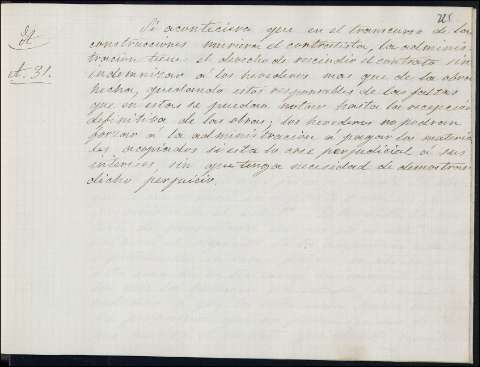 Si aconteciera que en el transcurso de las
construcciones muriera el contratista, la adminis-
tración tiene el derecho de rescindir el contrato sin
indemnizar á los herederos mas que de la obra
hecha, quedando estos responsables de las faltas
que en estas se puedan notar hasta la recepción
definitiva de las obras; los herederos no podran
forzar á la administración á pagar los materia-
les acopiados si esta lo cree perjudicial á sus
intereses, sin que tenga necesidad de demostrar
dicho perjuicio.
A. 31.